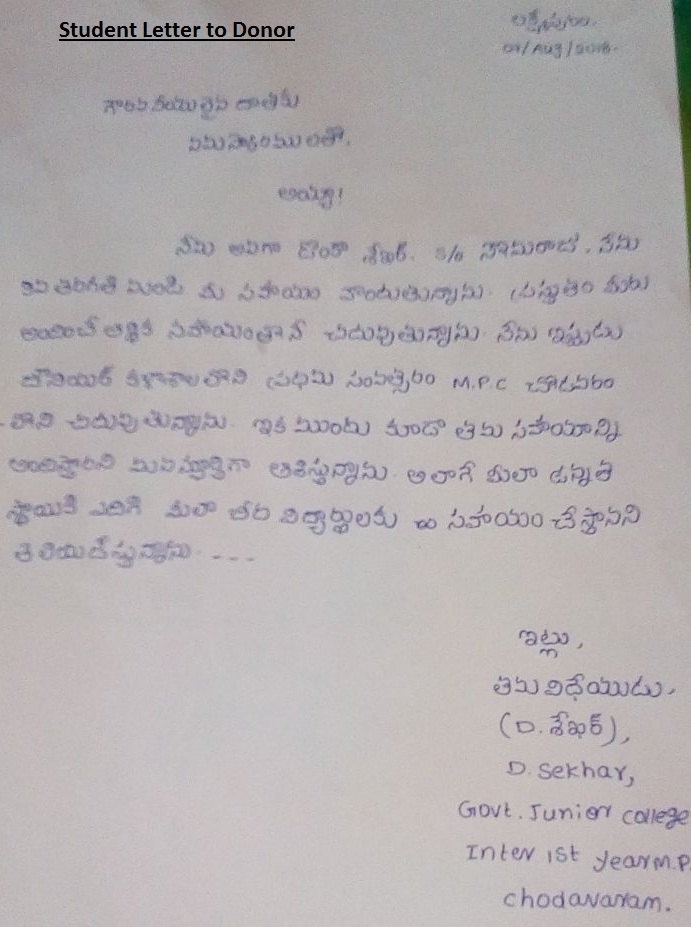 Student Letter to Donor
లక్ష్మీపురం.
/Aug/2018.
గౌరవనీయులైన దాతకు
నమస్కారములతో,
అయ్యా!
నేను అనగా దొండా శేఖర్. S/o సోమరాజు. నేను
తరగతి నుండి మీ సహాయం పొందుతున్నాను. ప్రస్తుతం మీరు
అందించే ఆర్థిక సహాయంతోనే చదువుతున్నాను. నేను ఇప్పుడు
జూనియర్ కళాశాలలోని ప్రథమ సంవత్సరం M.P.C చోడవరం
లోని చదువుతున్నాను. ఇక ముందు కూడా తమ సహాయాన్ని
అందిస్తారని మనస్పూర్తిగా ఆశిస్తున్నాను. అలాగే మీలా ఉన్నత
స్థాయికి ఎదిగి మీలా తోటి విద్యార్థులకు సహాయం చేస్తానని
తెలియజేస్తున్నాను. ---
ఇట్లు,
తమ విధేయుడు.
(D. శేఖర్),
D. Sekhar,
Govt. Junior college
Inter 1st year M.P.
chodavaram.